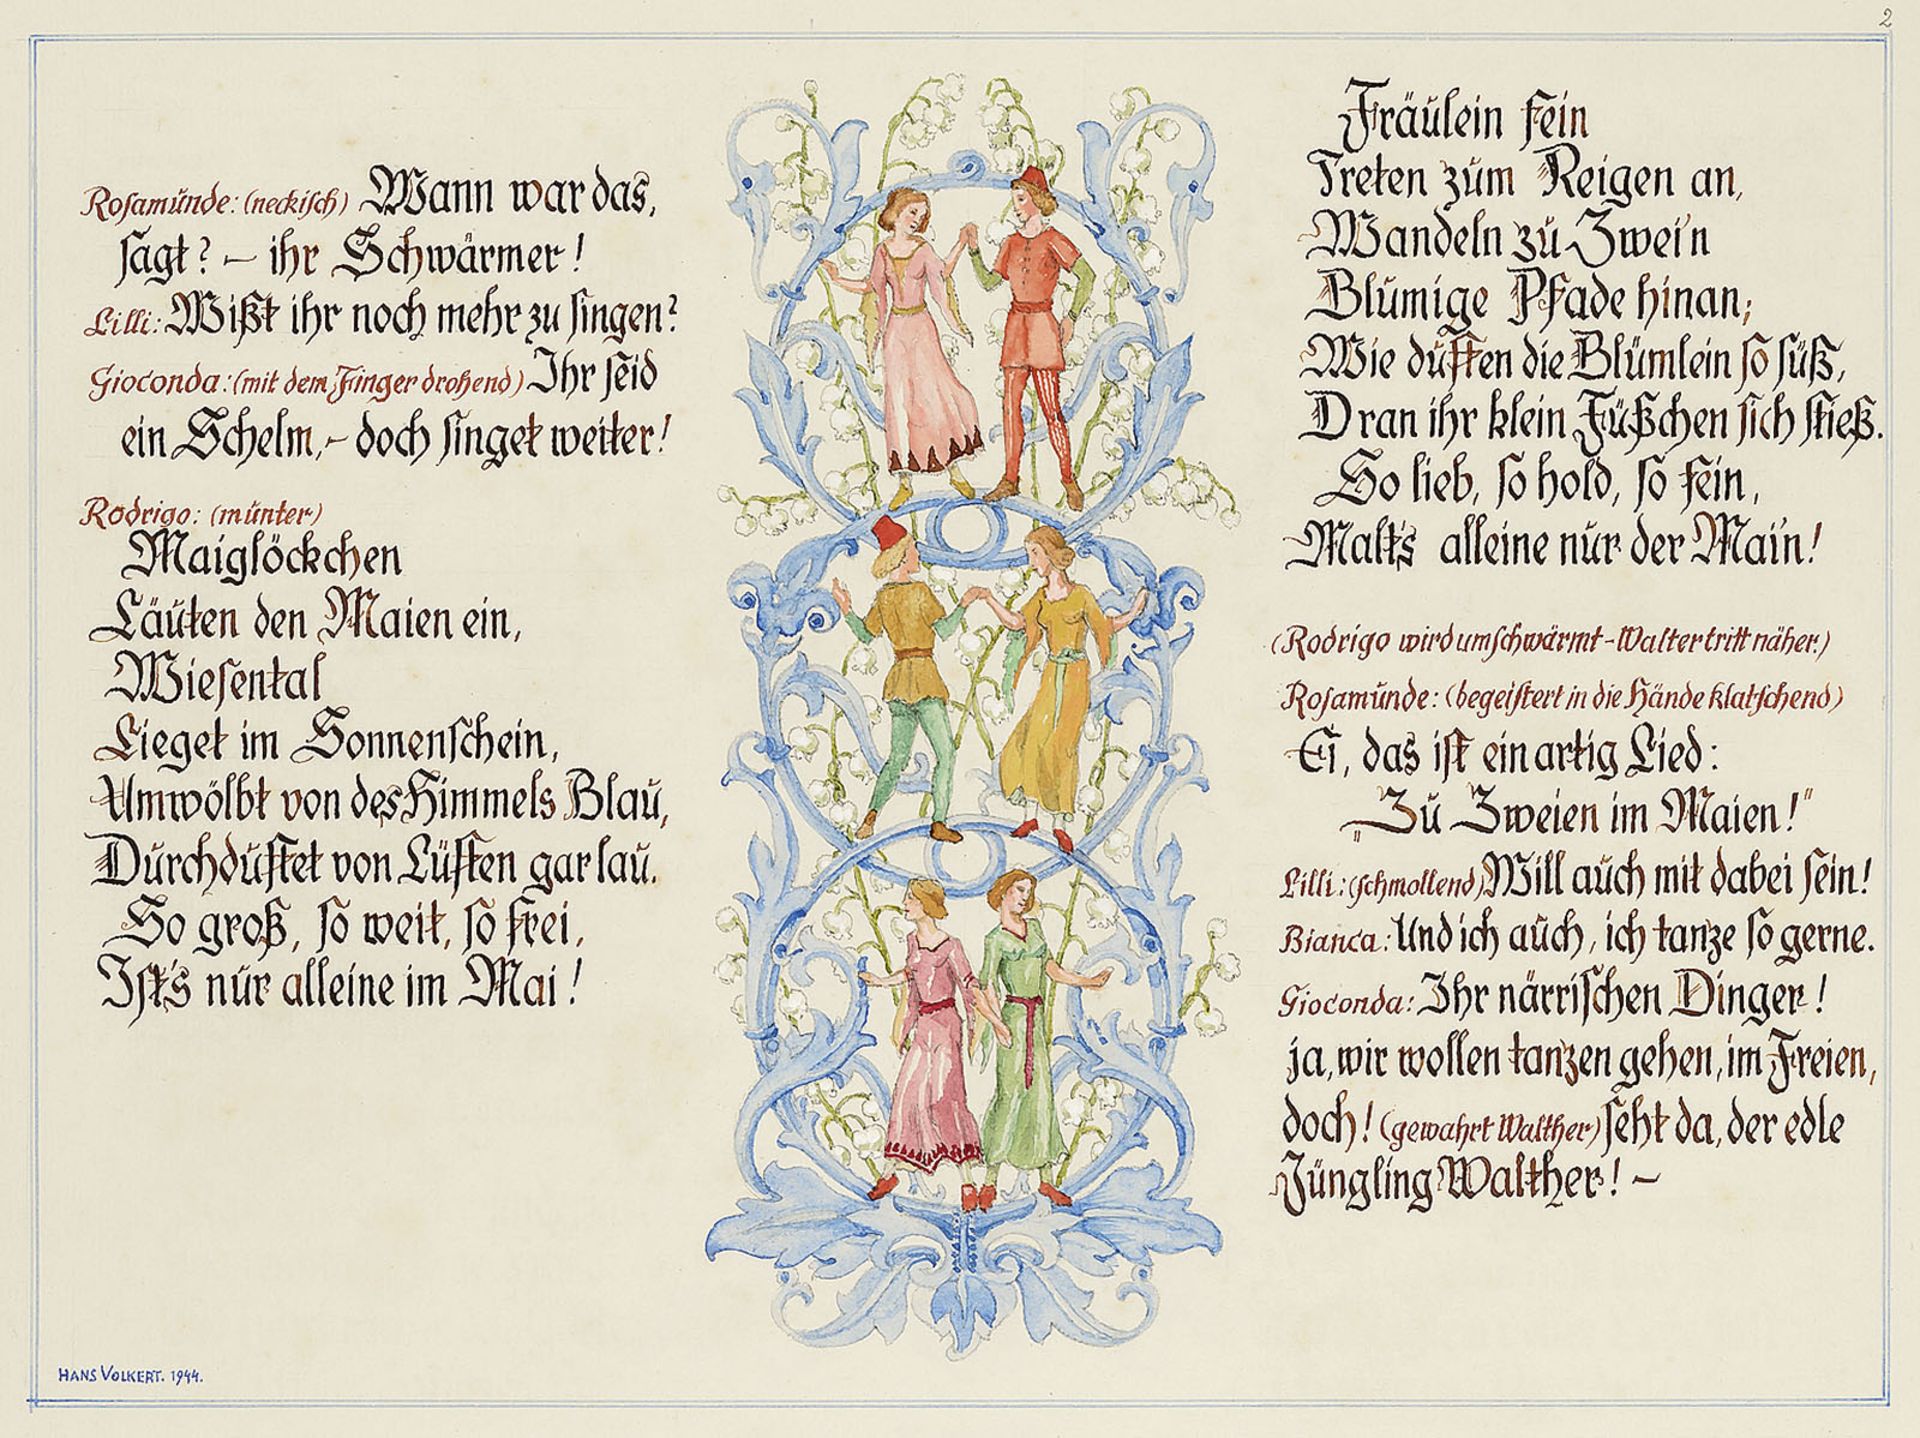 2
Rosamunde: (neckisch) Wann war das,
sagt? – ihr Schwärmer!
Lilli: Wißt ihr noch mehr zu singen?
Gioconda: (mit dem Finger drohend) Ihr seid
ein Schelm, – doch singet weiter!
Rodrigo: (munter)
Maiglöckchen
Läuten den Maien ein,
Wiesental
Lieget im Sonnenschein,
Umwölbt von des Himmels Blau,
Durchduftet von Lüften gar lau.
So groß, so weit, so frei,
Ist's nur alleine im Mai!
Fräulein fein
Treten zum Reigen an,
Wandeln zu Zwei'n
Blumige Pfade hinan;
Wie duften die Blümlein so süß,
Dran ihr klein Füßchen sich stieß.
So lieb, so hold, so fein,
Malt's alleine nur der Mai'n!
(Rodrigo wird umschwärmt - Walter tritt näher.)
Rosamunde: (begeistert in die Hände klatschend)
Ei, das ist ein artig Lied:
„Zu Zweien im Maien!"
Lilli: (schmollend) Will auch mit dabei sein!
Bianca: Und ich auch, ich tanze so gerne.
Gioconda: Ihr närrischen Dinger!
ja, wir wollen tanzen gehen, im Freien,
doch! (gewahrt Walther) seht da, der edle
Jüngling Walther! –
HANS VOLKERT. 1944.